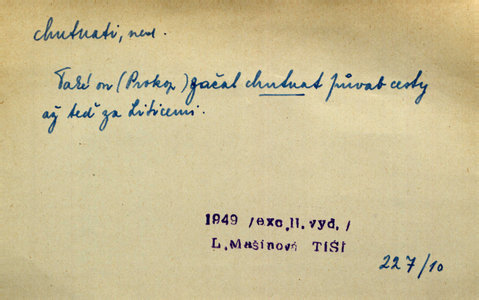 chutnati, ned.
Také on (Prokop) začal chutnat půvab cesty
až teď za Liticemi.
1949 /exc. II. vyd. /
L. Mašínová TIŠI
227/10